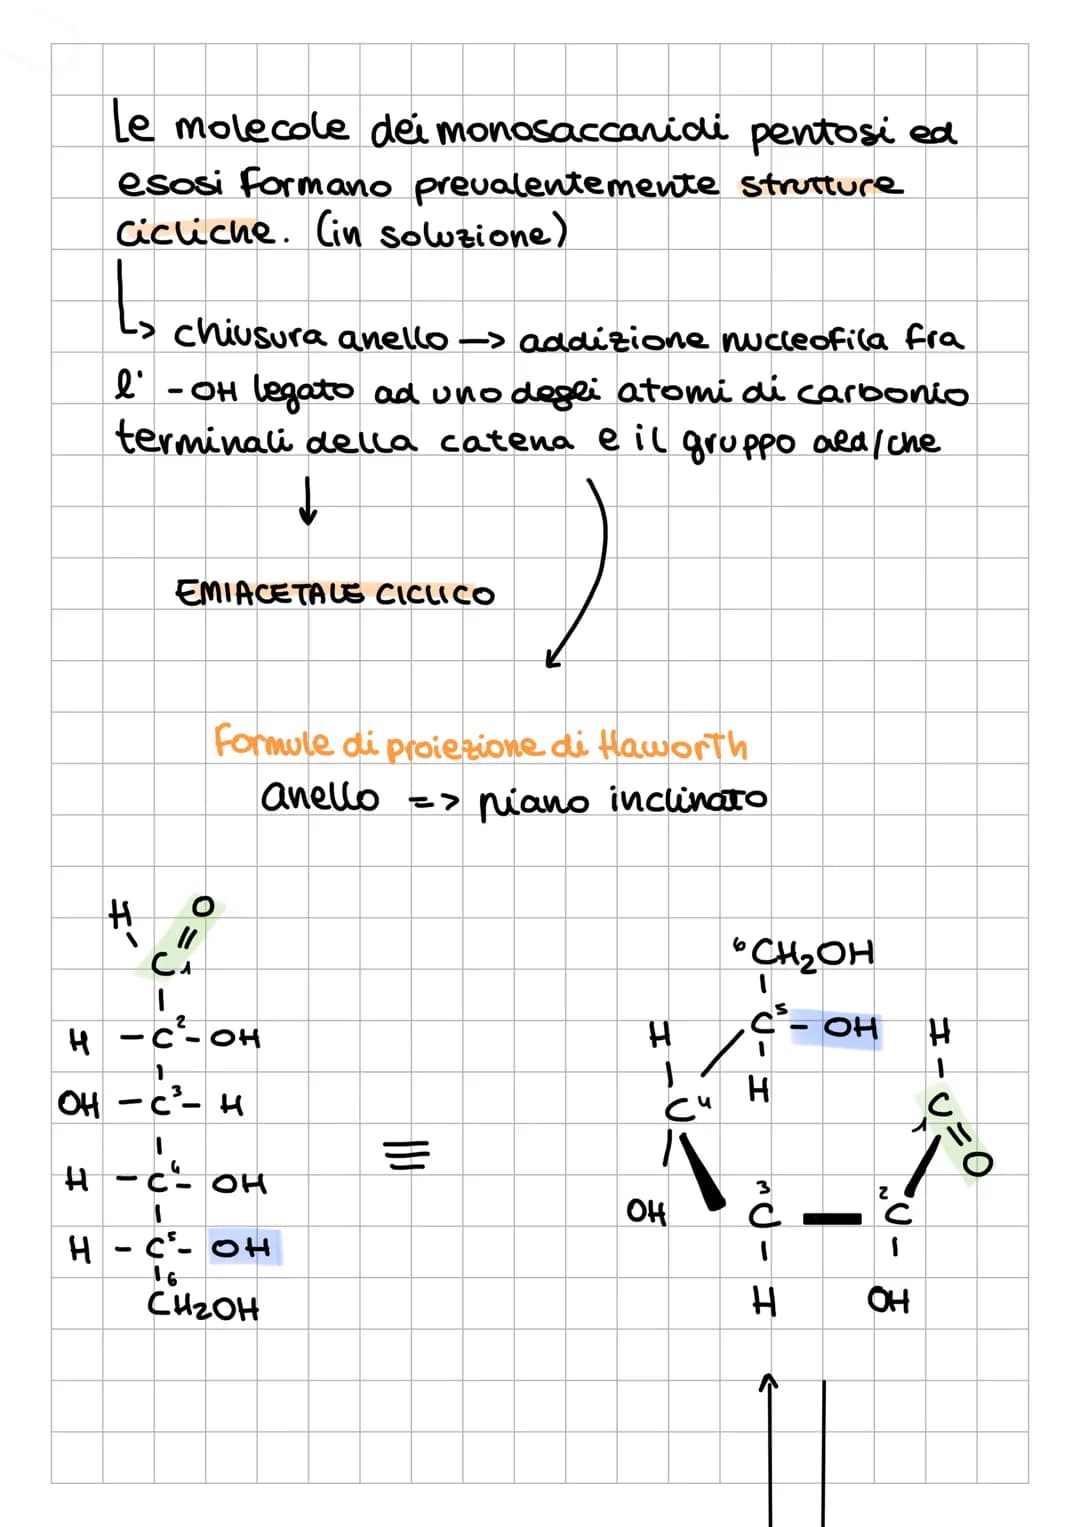 Le molecole dei monosaccaridi pentosi ed
esosi formano prevalentemente strutture
cicliche. (in soluzione)
↳ chiusura anello —> addizione nucleofila fra
l' -OH legato ad uno degli atomi di carbonio
terminali della catena e il gruppo ald/che
EMIACETALE CICLICO
Formule di proiezione di Haworth
anello => piano inclinato
H O
C1
H - C2 - OH
OH - C3 - H
H - C4 - OH
H - C5 - OH
6
CH2OH
≡
6 CH2OH
H C5 - OH H
C4 H C 1 O
OH 3 C — 2 C
H OH